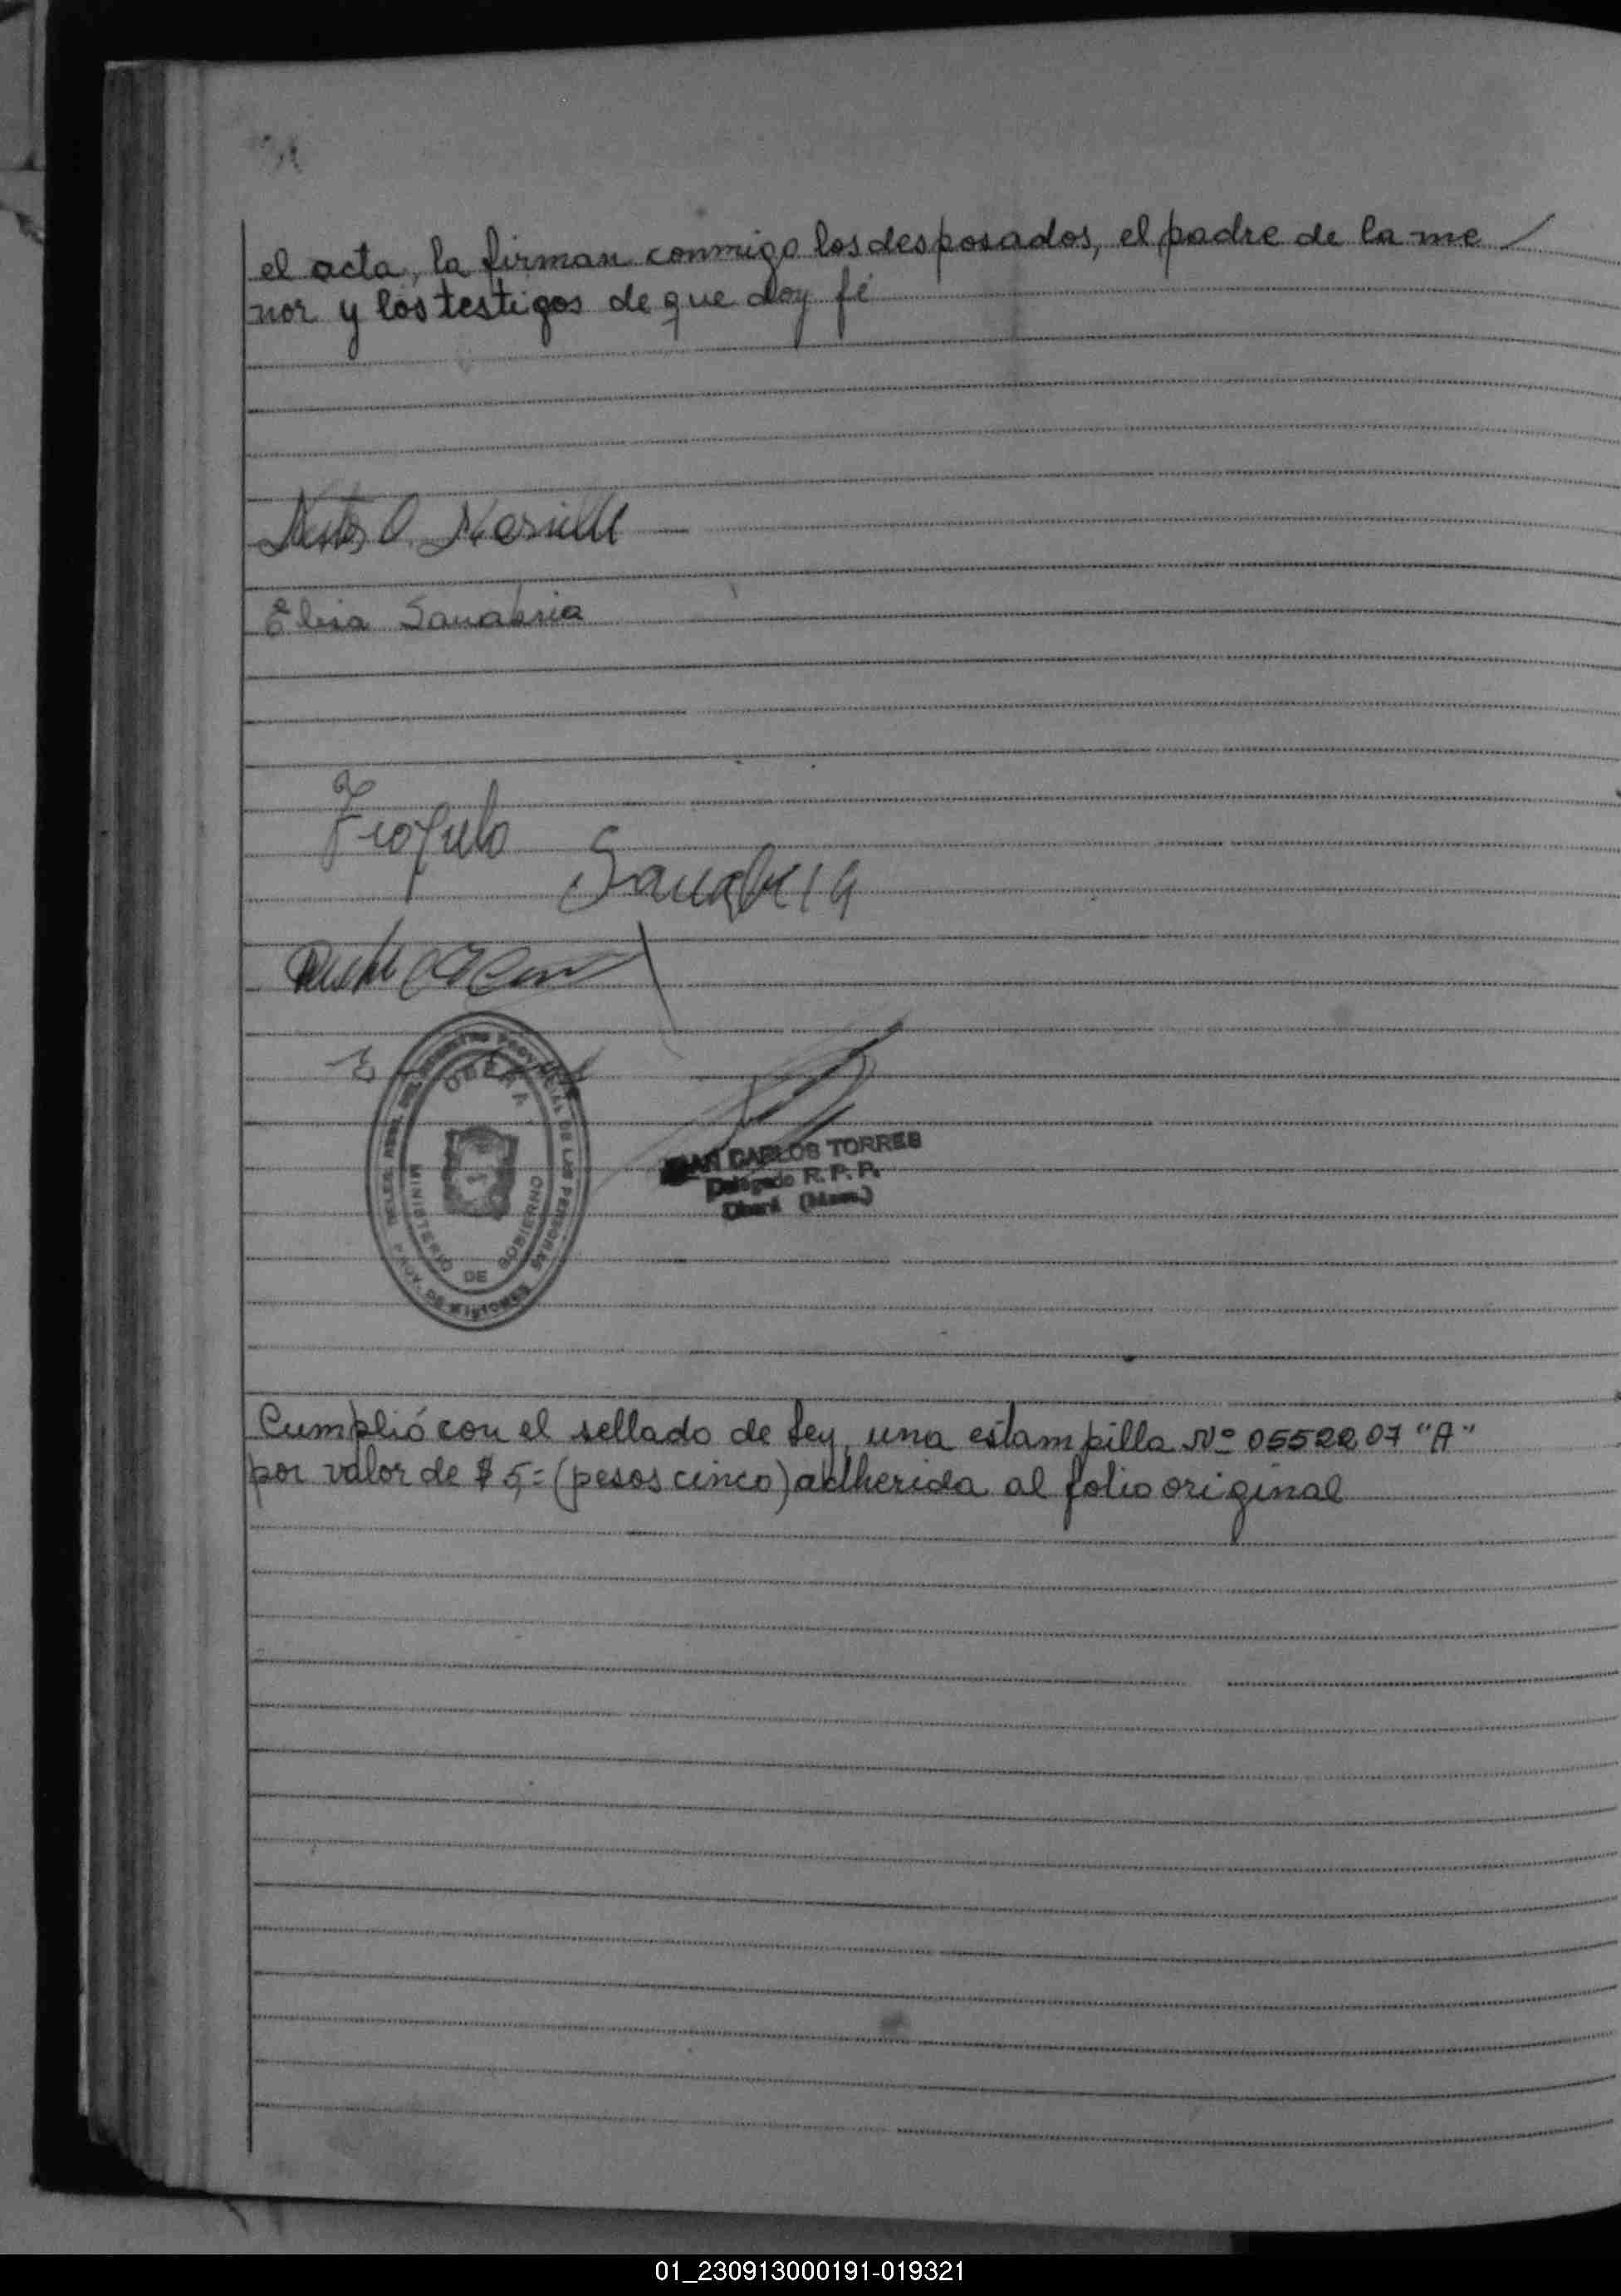 el acta, la firman conmigo los desposados, el padre de la me
nor y los testigos de que doy fé
Elisa Sanabria
Sanabria
OBERA
MINISTERIO DE GOBIERNO
PROVINCIAL DE LAS PERSONAS
PROV. DE MISIONES
JUAN CARLOS TORRES
Delegado R. P. P.
Oberá (Mnes.)
Cumplió con el sellado de Ley, una estampilla Nº 0552207 "A"
por valor de $ 5,= (pesos cinco) adherida al folio original
01_230913000191-019321